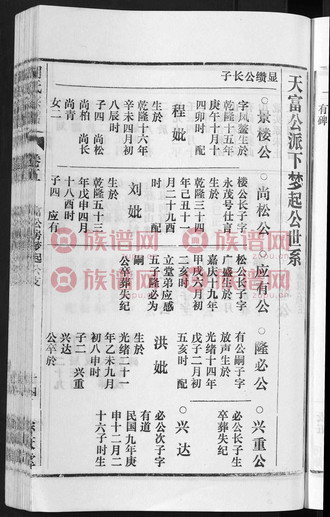 天富公派下梦起公世系
显缵公长子
○景楼公
字凤鳌生於
乾隆十五年
庚午十月十
四卯时 配
程妣
生於
乾隆十六年
辛未四月初
八辰时
子四 尚松
尚柏 尚长
尚青
女二
○尚松公
楼公长子字
永茂号仕育
乾隆三十四
年己丑十一
月二十九酉
时 配
刘妣
生於
乾隆五十三
年戊申四月
十八酉时
子四 应有
○应有公
松公长子字
广盛生於
嘉庆十九年
甲戌六月初
五亥时
立堂弟应感
五子隆必为
嗣
公卒葬失纪
○隆必公
有公嗣子字
放声生於
光绪十四年
戊子二月初
五亥时 配
洪妣
生於
光绪二十一
年乙未九月
初八申时
子二 兴重
兴达
公卒於
○兴重公
必公长子生
卒葬失纪
○兴达
必公次子字
有道
民国九年庚
申十二月二
十六子时生
族谱网
有碑